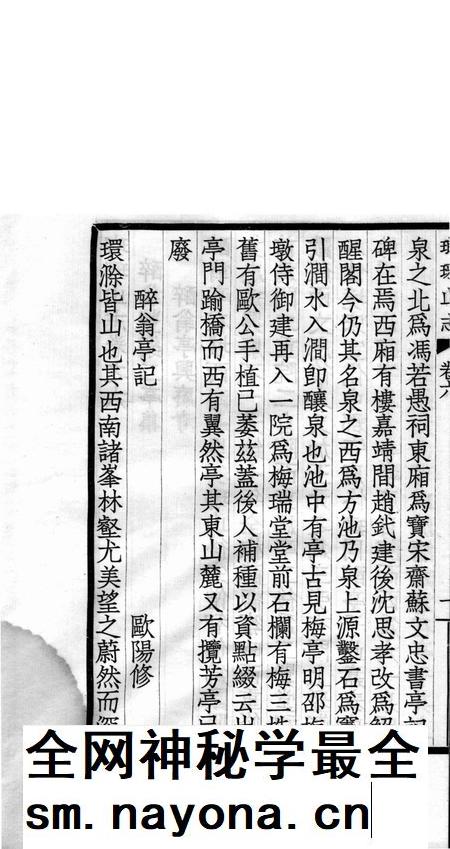 山志 卷六
泉之北爲馮若愚祠東廂爲寶宋齋蘇文忠書亭記
碑在焉西廂有樓嘉靖間趙釴建後沈思孝改爲解
醒閣今仍其名泉之西爲方池乃泉上源鑿石爲竇
引澗水入澗卽釀泉也池中有亭古見梅亭明邵梅
墩侍御建再入一院爲梅瑞堂堂前石欄有梅三株
舊有歐公手植已萎茲蓋後人補種以資點綴云出
亭門踰橋而西有翼然亭其東山麓又有攬芳亭已
廢
醉翁亭記 歐陽修
環滁皆山也其西南諸峯林壑尤美望之蔚然而深
全网神秘学最全
sm.nayona.cn